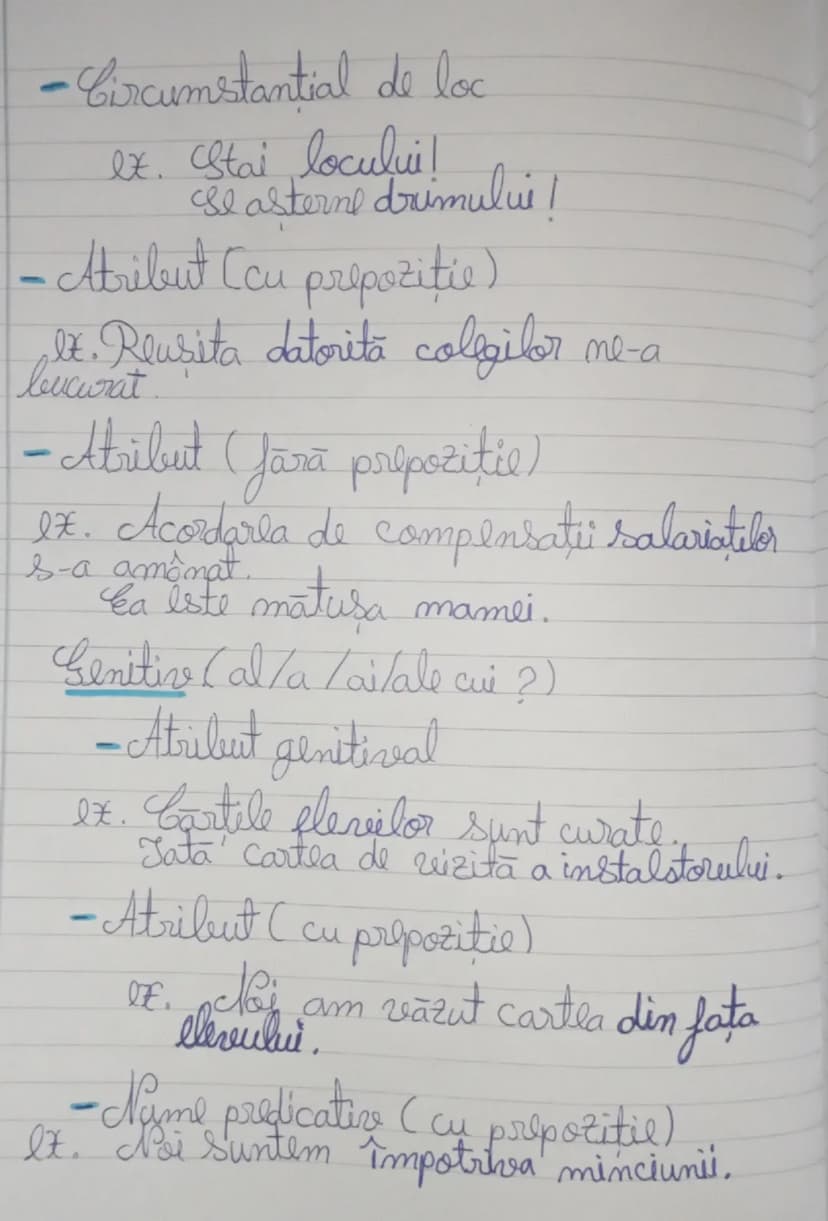 - Circumstanțial de loc
ex. Stai locului!
Se așterne drumului!
- Atribut (cu prepoziție)
ex. Reușita datorită colegilor ne-a
bucurat.
- Atribut (fără prepoziție)
ex. Acordarea de compensații salariaților
s-a amânat.
Ea este mătușa mamei.
Genitiv (al/a/ai/ale cui?)
- Atribut genitival
ex. Cărțile elevilor sunt curate.
Iată cartea de vizită a instalstorului.
- Atribut (cu prepoziție)
ex. Noi am văzut cartea din fața
elevului.
- Nume predicativ (cu prepoziție)
ex. Noi suntem împotriva minciunii.